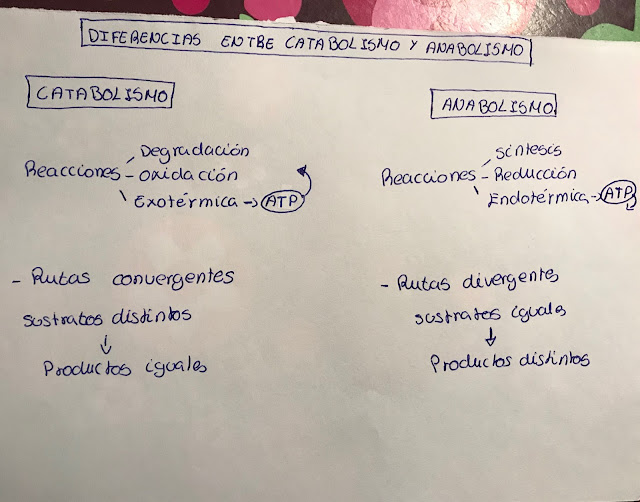 DIFERENCIAS ENTRE CATABOLISMO Y ANABOLISMO
CATABOLISMO
Reacciones - Degradación
- Oxidación
Exotérmica → ATP
- Rutas convergentes
sustratos distintos
↓
Productos iguales
ANABOLISMO
Reacciones - Síntesis
- Reducción
Endotérmica → ATP
- Rutas divergentes
sustratos iguales
↓
Productos distintos